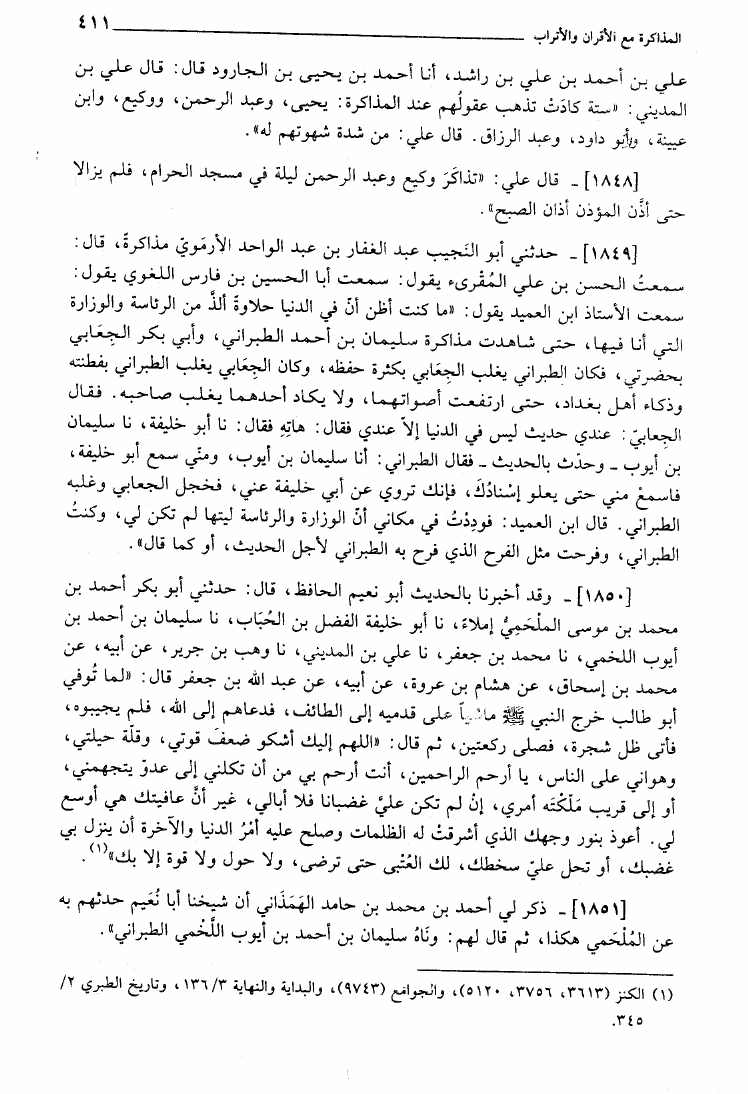 المذاكرة مع الأقران والأتراب ٤١١
علي بن أحمد بن علي بن راشد، أنا أحمد بن يحيى بن الجارود قال: قال علي بن
المديني: «ستة كادَتْ تذهب عقولُهم عند المذاكرة: يحيى، وعبد الرحمن، ووكيع، وابن
عيينة، وأبو داود، وعبد الرزاق. قال علي: من شدة شهوتهم له».
[١٨٤٨] ـ قال علي: «تذاكَرَ وكيع وعبد الرحمن ليلة في مسجد الحرام، فلم يزالا
حتى أذَّن المؤذن أذان الصبح».
[١٨٤٩] ـ حدثني أبو النَجيب عبد الغفار بن عبد الواحد الأرمَويّ مذاكرةً، قال:
سمعتُ الحسن بن علي المُقْرىء يقول: سمعت أبا الحسين بن فارس اللغوي يقول:
سمعت الأستاذ ابن العميد يقول: «ما كنت أظن أنّ في الدنيا حلاوةً ألذّ من الرئاسة والوزارة
التي أنا فيها، حتى شاهدت مذاكرة سليمان بن أحمد الطبراني، وأبي بكر الجِعابي
بحضرتي، فكان الطبراني يغلب الجِعَابي بكثرة حفظه، وكان الجِعَابي يغلب الطبراني بفطنته
وذكاء أهل بغداد، حتى ارتفعت أصواتهما، ولا يكاد أحدهما يغلب صاحبه. فقال
الجعابيّ: عندي حديث ليس في الدنيا إلاّ عندي فقال: هاتِهِ فقال: نا أبو خليفة، نا سليمان
بن أيوب ـ وحدّث بالحديث ـ فقال الطبراني: أنا سليمان بن أيوب، ومنّي سمع أبو خليفة،
فاسمعْ مني حتى يعلو إسْنادُكَ، فإنك تروي عن أبي خليفة عني، فخجل الجعابي وغلبه
الطبراني. قال ابن العميد: فودِدْتُ في مكاني أنّ الوزارة والرئاسة ليتها لم تكن لي، وكنتُ
الطبراني، وفرحت مثل الفرح الذي فرح به الطبراني لأجل الحديث، أو كما قال».
[١٨٥٠] ـ وقد أخبرنا بالحديث أبو نعيم الحافظ، قال: حدثني أبو بكر أحمد بن
محمد بن موسى الملْحَمِيُّ إملاءً، نا أبو خليفة الفضل بن الحُبَاب، نا سليمان بن أحمد بن
أيوب اللخمي، نا محمد بن جعفر، نا علي بن المديني، نا وهب بن جرير، عن أبيه، عن
محمد بن إسحاق، عن هشام بن عروة، عن أبيه، عن عبد الله بن جعفر قال: «لما تُوفي
أبو طالب خرج النبي ﷺ ماشياً على قدميه إلى الطائف، فدعاهم إلى الله، فلم يجيبوه،
فأتى ظل شجرة، فصلى ركعتين، ثم قال: «اللهم إليك أشكو ضعفَ قوتي، وقلّة حيلتي،
وهواني على الناس، يا أرحم الراحمين، أنت أرحم بي من أن تكلني إلى عدوّ يتجهمني،
أو إلى قريب مَلّكْتَه أمري، إنْ لم تكن عليَّ غضبانا فلا أبالي، غير أنَّ عافيتك هي أوسع
لي. أعوذ بنور وجهك الذي أشرقتْ له الظلمات وصلح عليه أمْرُ الدنيا والآخرة أن ينزل بي
غضبك، أو تحل عليّ سخطك، لك العُتْبى حتى ترضى، ولا حول ولا قوة إلا بك»(١).
[١٨٥١] ـ ذكر لي أحمد بن محمد بن حامد الهَمَذَاني أن شيخنا أبا نُعَيم حدثهم به
عن المُلْحَمي هكذا، ثم قال لهم: ونَاهُ سليمان بن أحمد بن أيوب اللَّخْمي الطبراني».
(١) الكنز (٣٦١٣، ٣٧٥٦، ٥١٢٠)، والجوامع (٩٧٤٣)، والبداية والنهاية ١٣٦/٣، وتاريخ الطبري ٢/
٣٤٥.